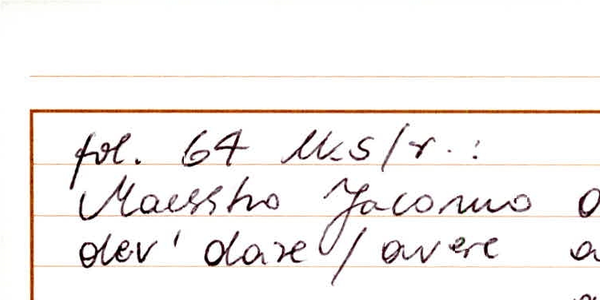 fol. 64 lks/r.:
Maesstro Jacomo
dev' dare / avere